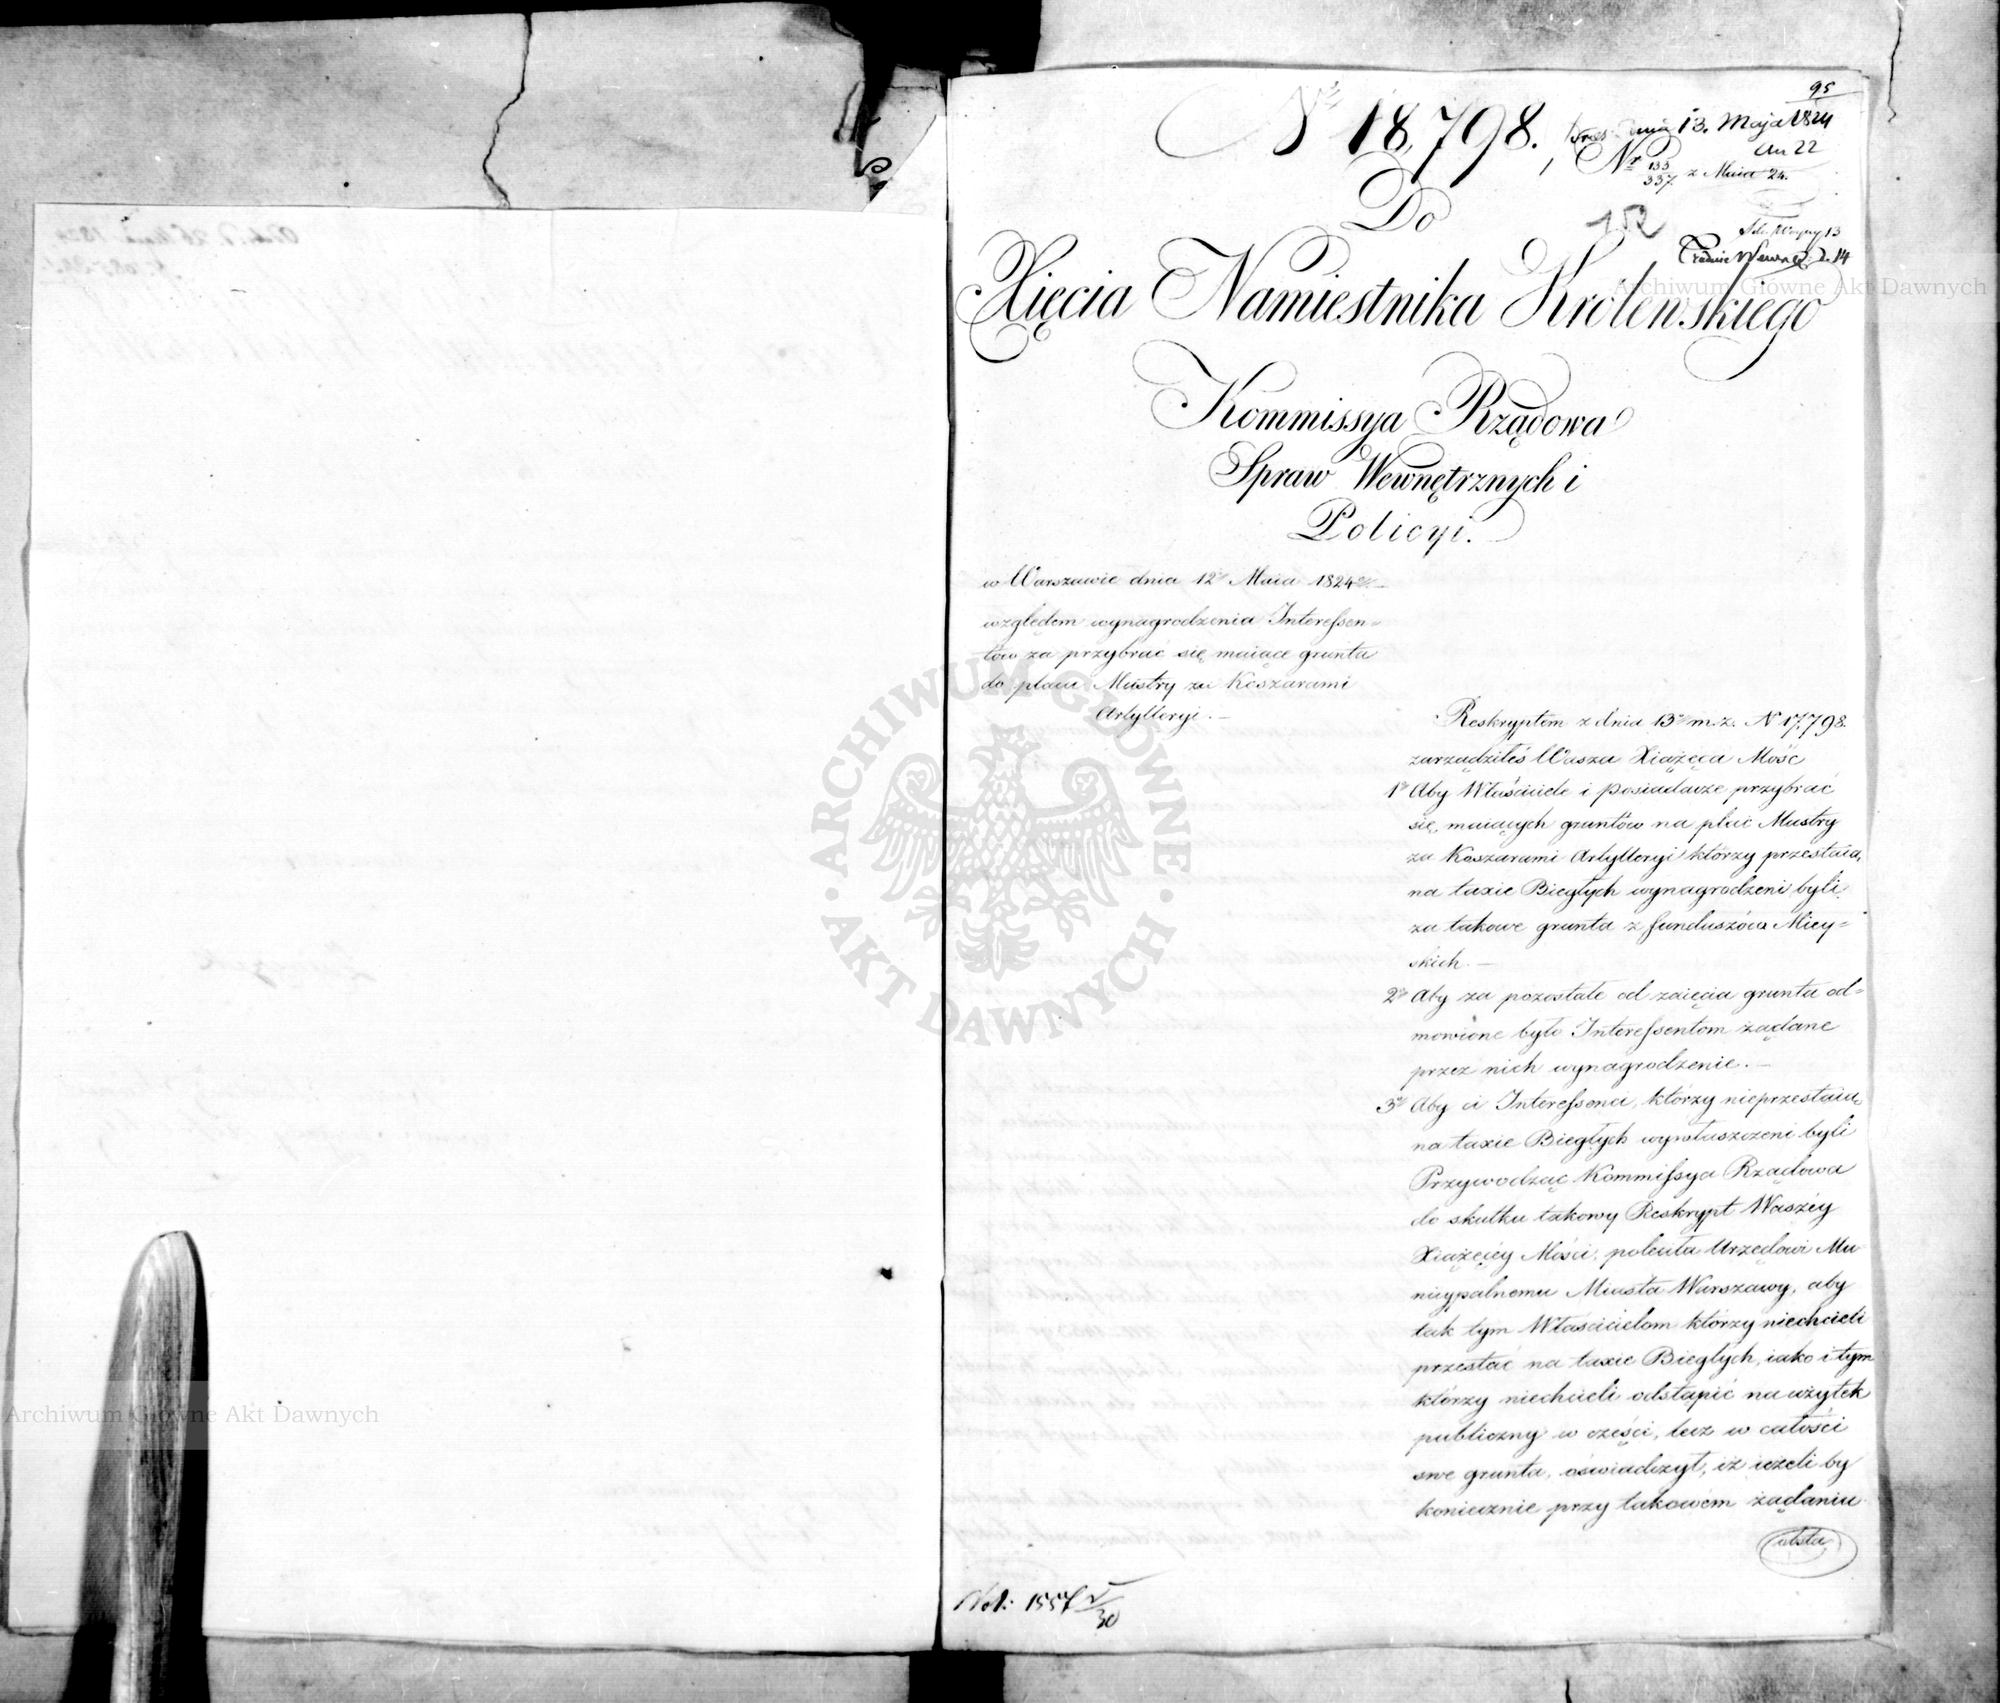 95
Nº 18,798.
Pres. dnia 13. Maja 1824
Nr 133/337. z Maia 24.
152
Do
Xięcia Namiestnika Królewskiego
Kommissya Rządowa
Spraw Wewnętrznych i
Policyi.
w Warszawie dnia 12º Maia 1824 r.
względem wynagrodzenia Interessen=
tów za przybrać się maiące grunta
do placu Mustry za Koszarami
Artylleryi. —
Reskryptem z dnia 13º m. z. N 17,798.
zarządziłeś Wasza Xiążęca Mość
1º Aby Właściciele i posiadacze przybrać
się maiących gruntów na plac Mustry
za Koszarami Artylleryi którzy przestaią
na taxie Biegłych wynagrodzeni byli
za takowe grunta z funduszów Miey=
skich. —
2º Aby za pozostałe od zaięcia grunta od=
mówione było Interessentom żądane
przez nich wynagrodzenie. —
3º Aby ci Interessenci, którzy nieprzestaią
na taxie Biegłych wywłaszczeni byli
Przywodząc Kommissya Rządowa
do skutku takowy Reskrypt Waszéy
Xiążęcéy Mości, poleciła Urzędowi Mu
nicypalnemu Miasta Warszawy, aby
tak tym Właścicielom którzy niechcieli
przestać na taxie Biegłych, iako i tym
którzy niechcieli odstąpić na użytek
publiczny w części, lecz w całości
swe grunta, oświadczył, iż ieżeli by
koniecznie przy takowém żądaniu
obsta
Vol: 1557 V/30
Archiwum Główne Akt Dawnych
Archiwum Główne Akt Dawnych
ARCHIWUM GŁÓWNE · AKT DAWNYCH ·